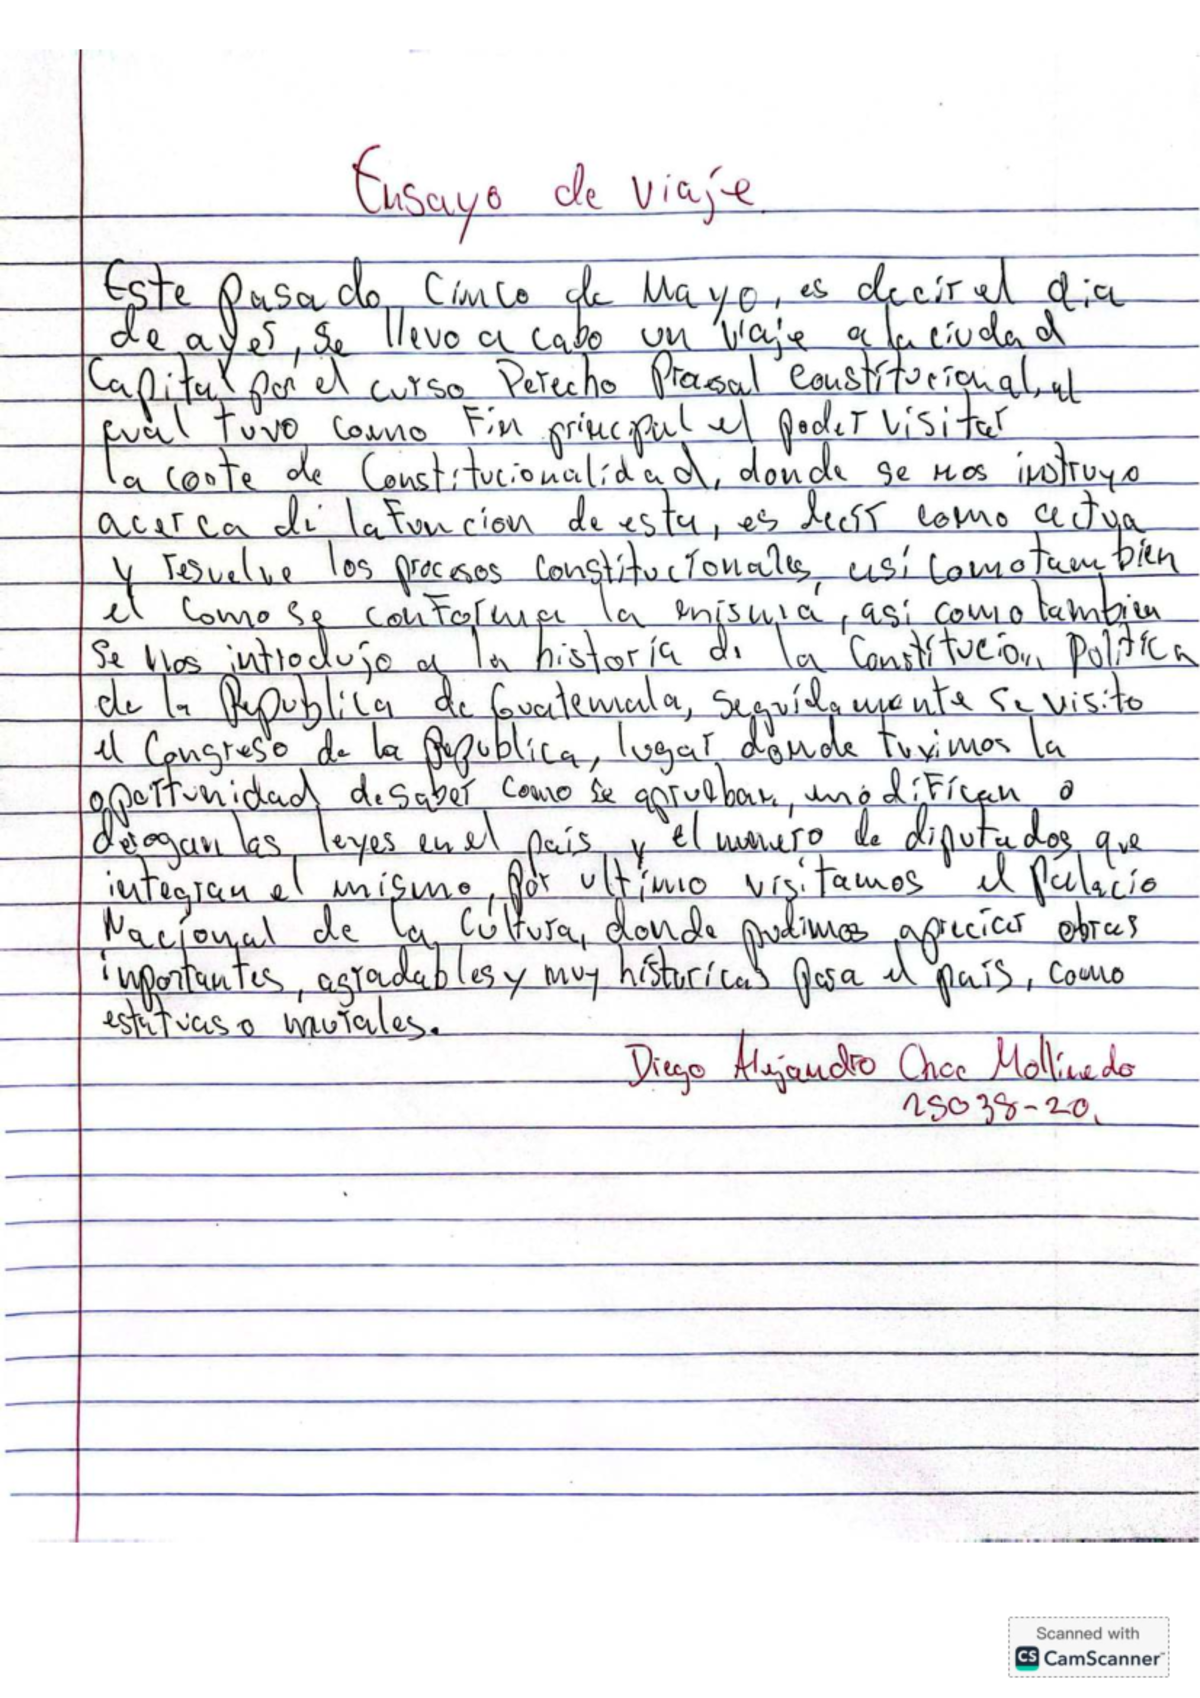 Ensayo de viaje.
Este pasado Cinco de Mayo, es decir el dia
de ayer, se llevo a cabo un viaje a la ciudad
Capital por el curso Derecho Procesal Constitucional, el
cual tuvo como Fin principal el poder visitar
la corte de Constitucionalidad, donde se nos instruyo
acerca de la Funcion de esta, es decir como actua
y resuelve los procesos constitucionales, así como tambien
el como se conforma la misma, así como tambien
se nos introdujo a la historia de la Constitucion Politica
de la Republica de Guatemala, seguidamente se visito
el Congreso de la Republica, lugar donde tuvimos la
oportunidad de saber como se aprueban, modifican o
derogan las leyes en el país y el numero de diputados que
integran el mismo, por ultimo visitamos el Palacio
Nacional de la Cultura, donde pudimos apreciar obras
importantes, agradables y muy historicas para el país, como
estatuas o murales.
Diego Alejandro Choc Mollinedo
25038-20.
Scanned with
CS CamScanner